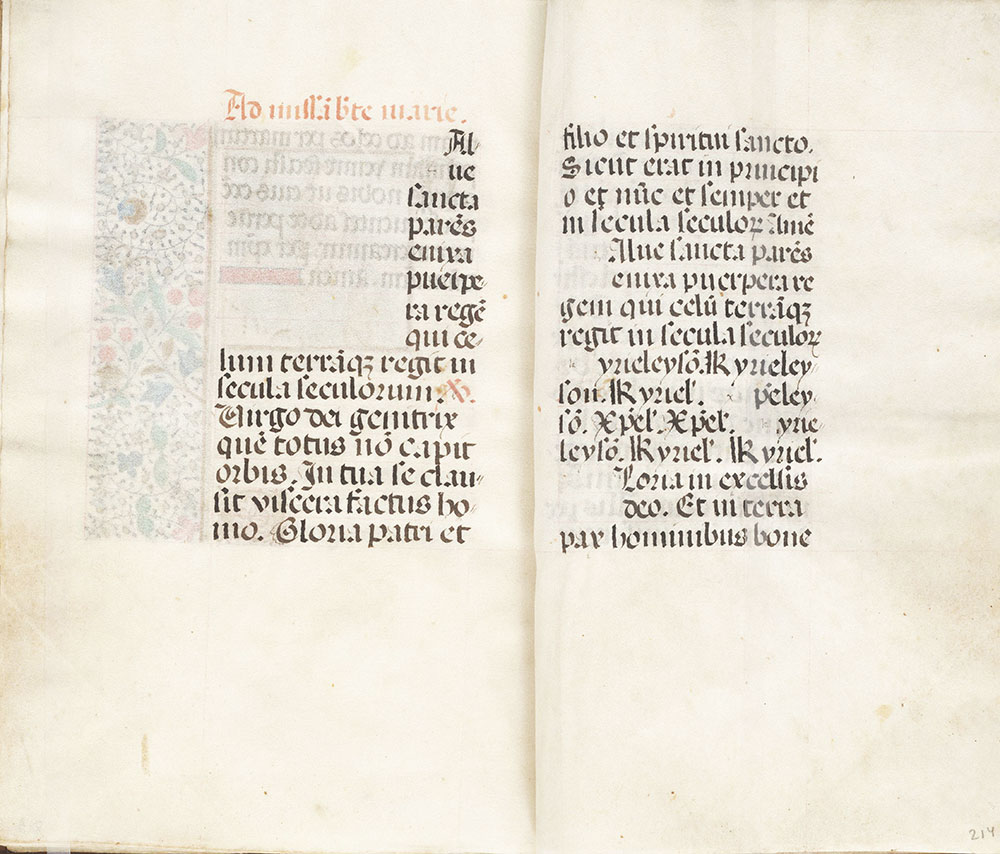 Ad missã bte marie.
Al-
ue
sancta
parẽs
enixa
puerpe-
ra regẽ
qui ce-
lum terrãqȝ regit in
secula seculorum. V.
Uirgo dei genitrix
quẽ totus nõ capit
orbis. In tua se clau-
sit viscera factus ho-
mo. Gloria patri et
filio et spiritui sancto.
Sicut erat in principi
o et nũc et semper et
in secula seculoꝝ Amẽ
Alue sancta parẽs
enixa puerpera re
gem qui celũ terrãqȝ
regit in secula seculoꝝ
yrieleysõ. Kyrieley-
son. Kyriel'. p̃eley-
sõ. Xp̃el'. Xp̃el'. yrie-
leysõ. Kyriel'. Kyriel'.
Loria in excelsis
deo. Et in terra
pax hominibus bone
214